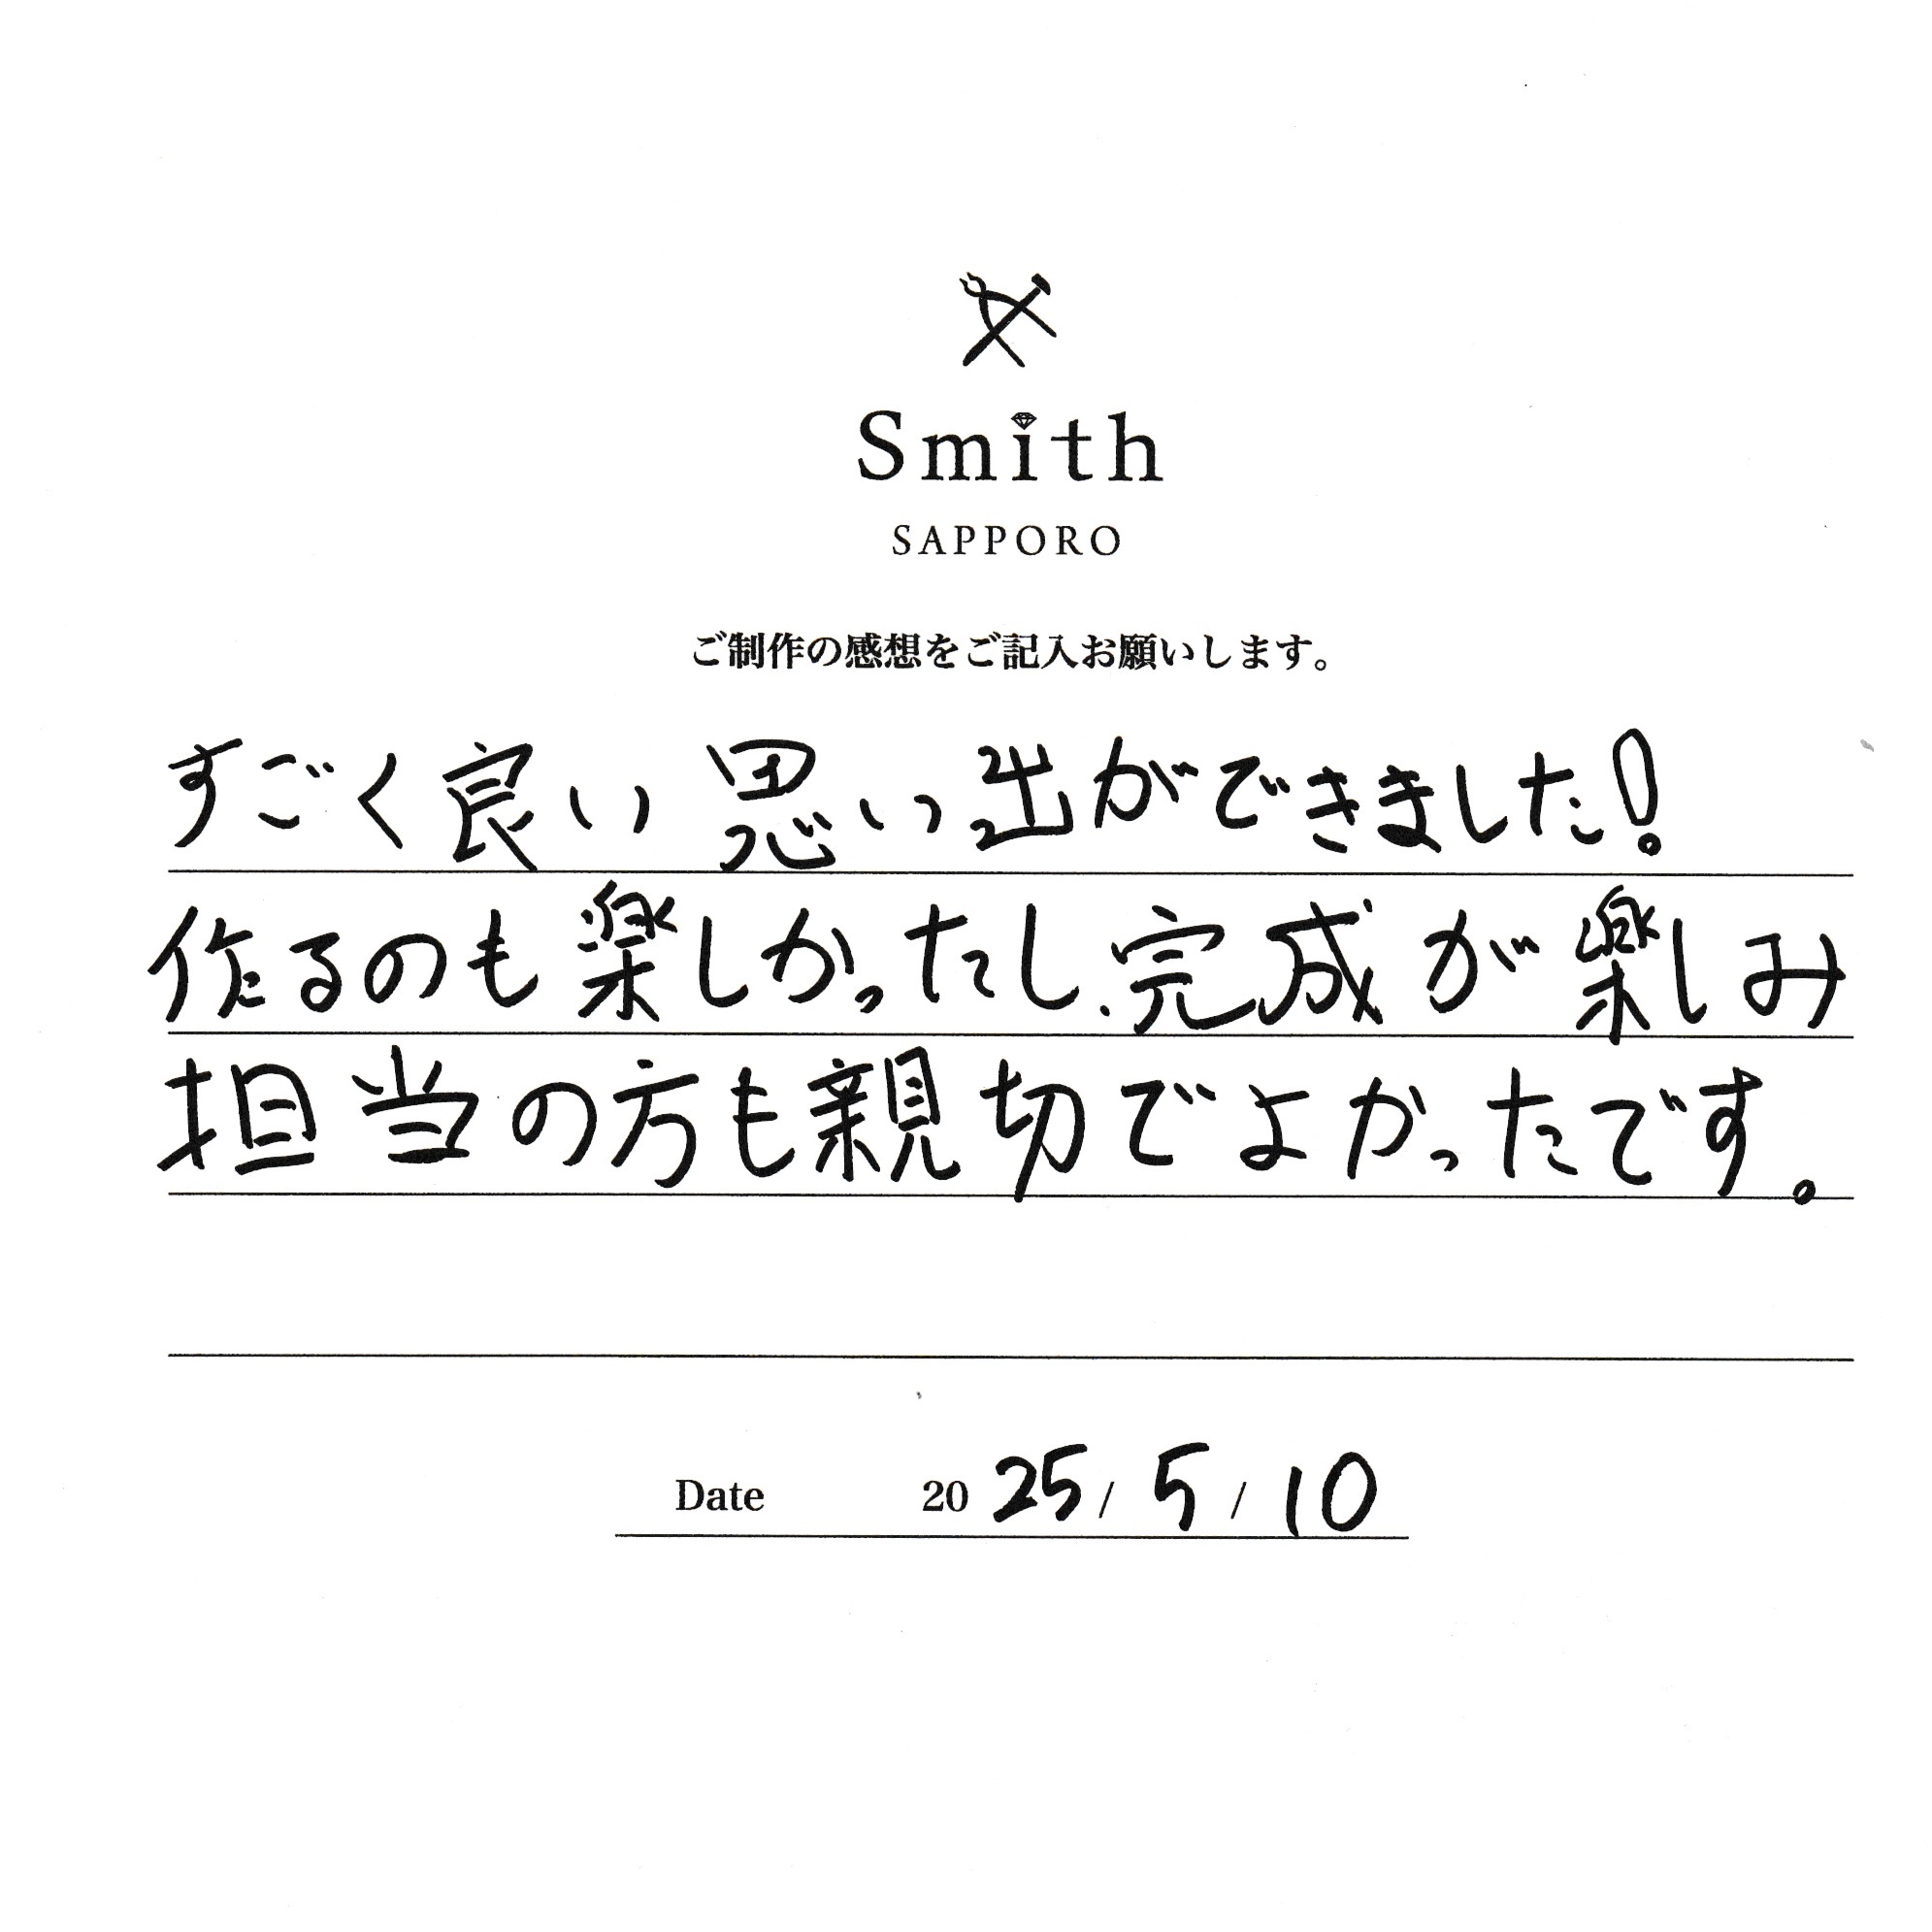 Smith
SAPPORO
ご制作の感想をご記入お願いします。
すごく良い思い出ができました!
作るのも楽しかったし、完成が楽しみ
担当の方も親切でよかったです。
Date 2025/5/10